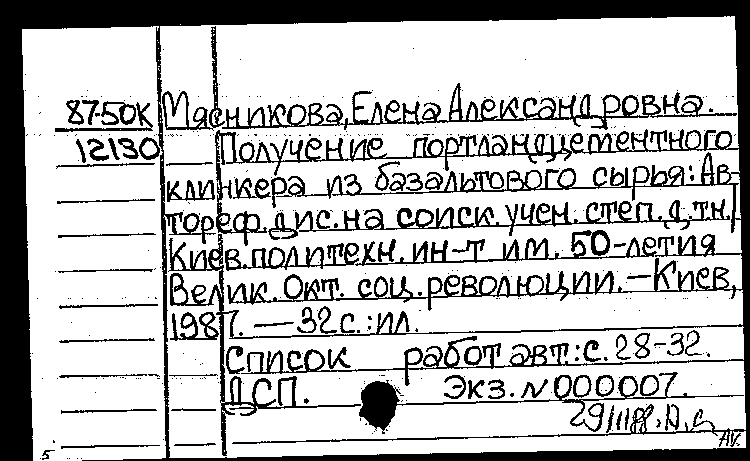 87-50К Мясникова, Елена Александровна.
12130 Получение портландцементного
клинкера из базальтового сырья: Ав-
тореф. дис. на соиск. учен. степ. д.т.н./
Киев. политехн. ин-т им. 50-летия
Велик. Окт. соц. революции. — Киев,
1987. — 32 с.: ил.
Список работ авт.: с. 28-32.
ДСП. Экз. N 000007.
AV.
5